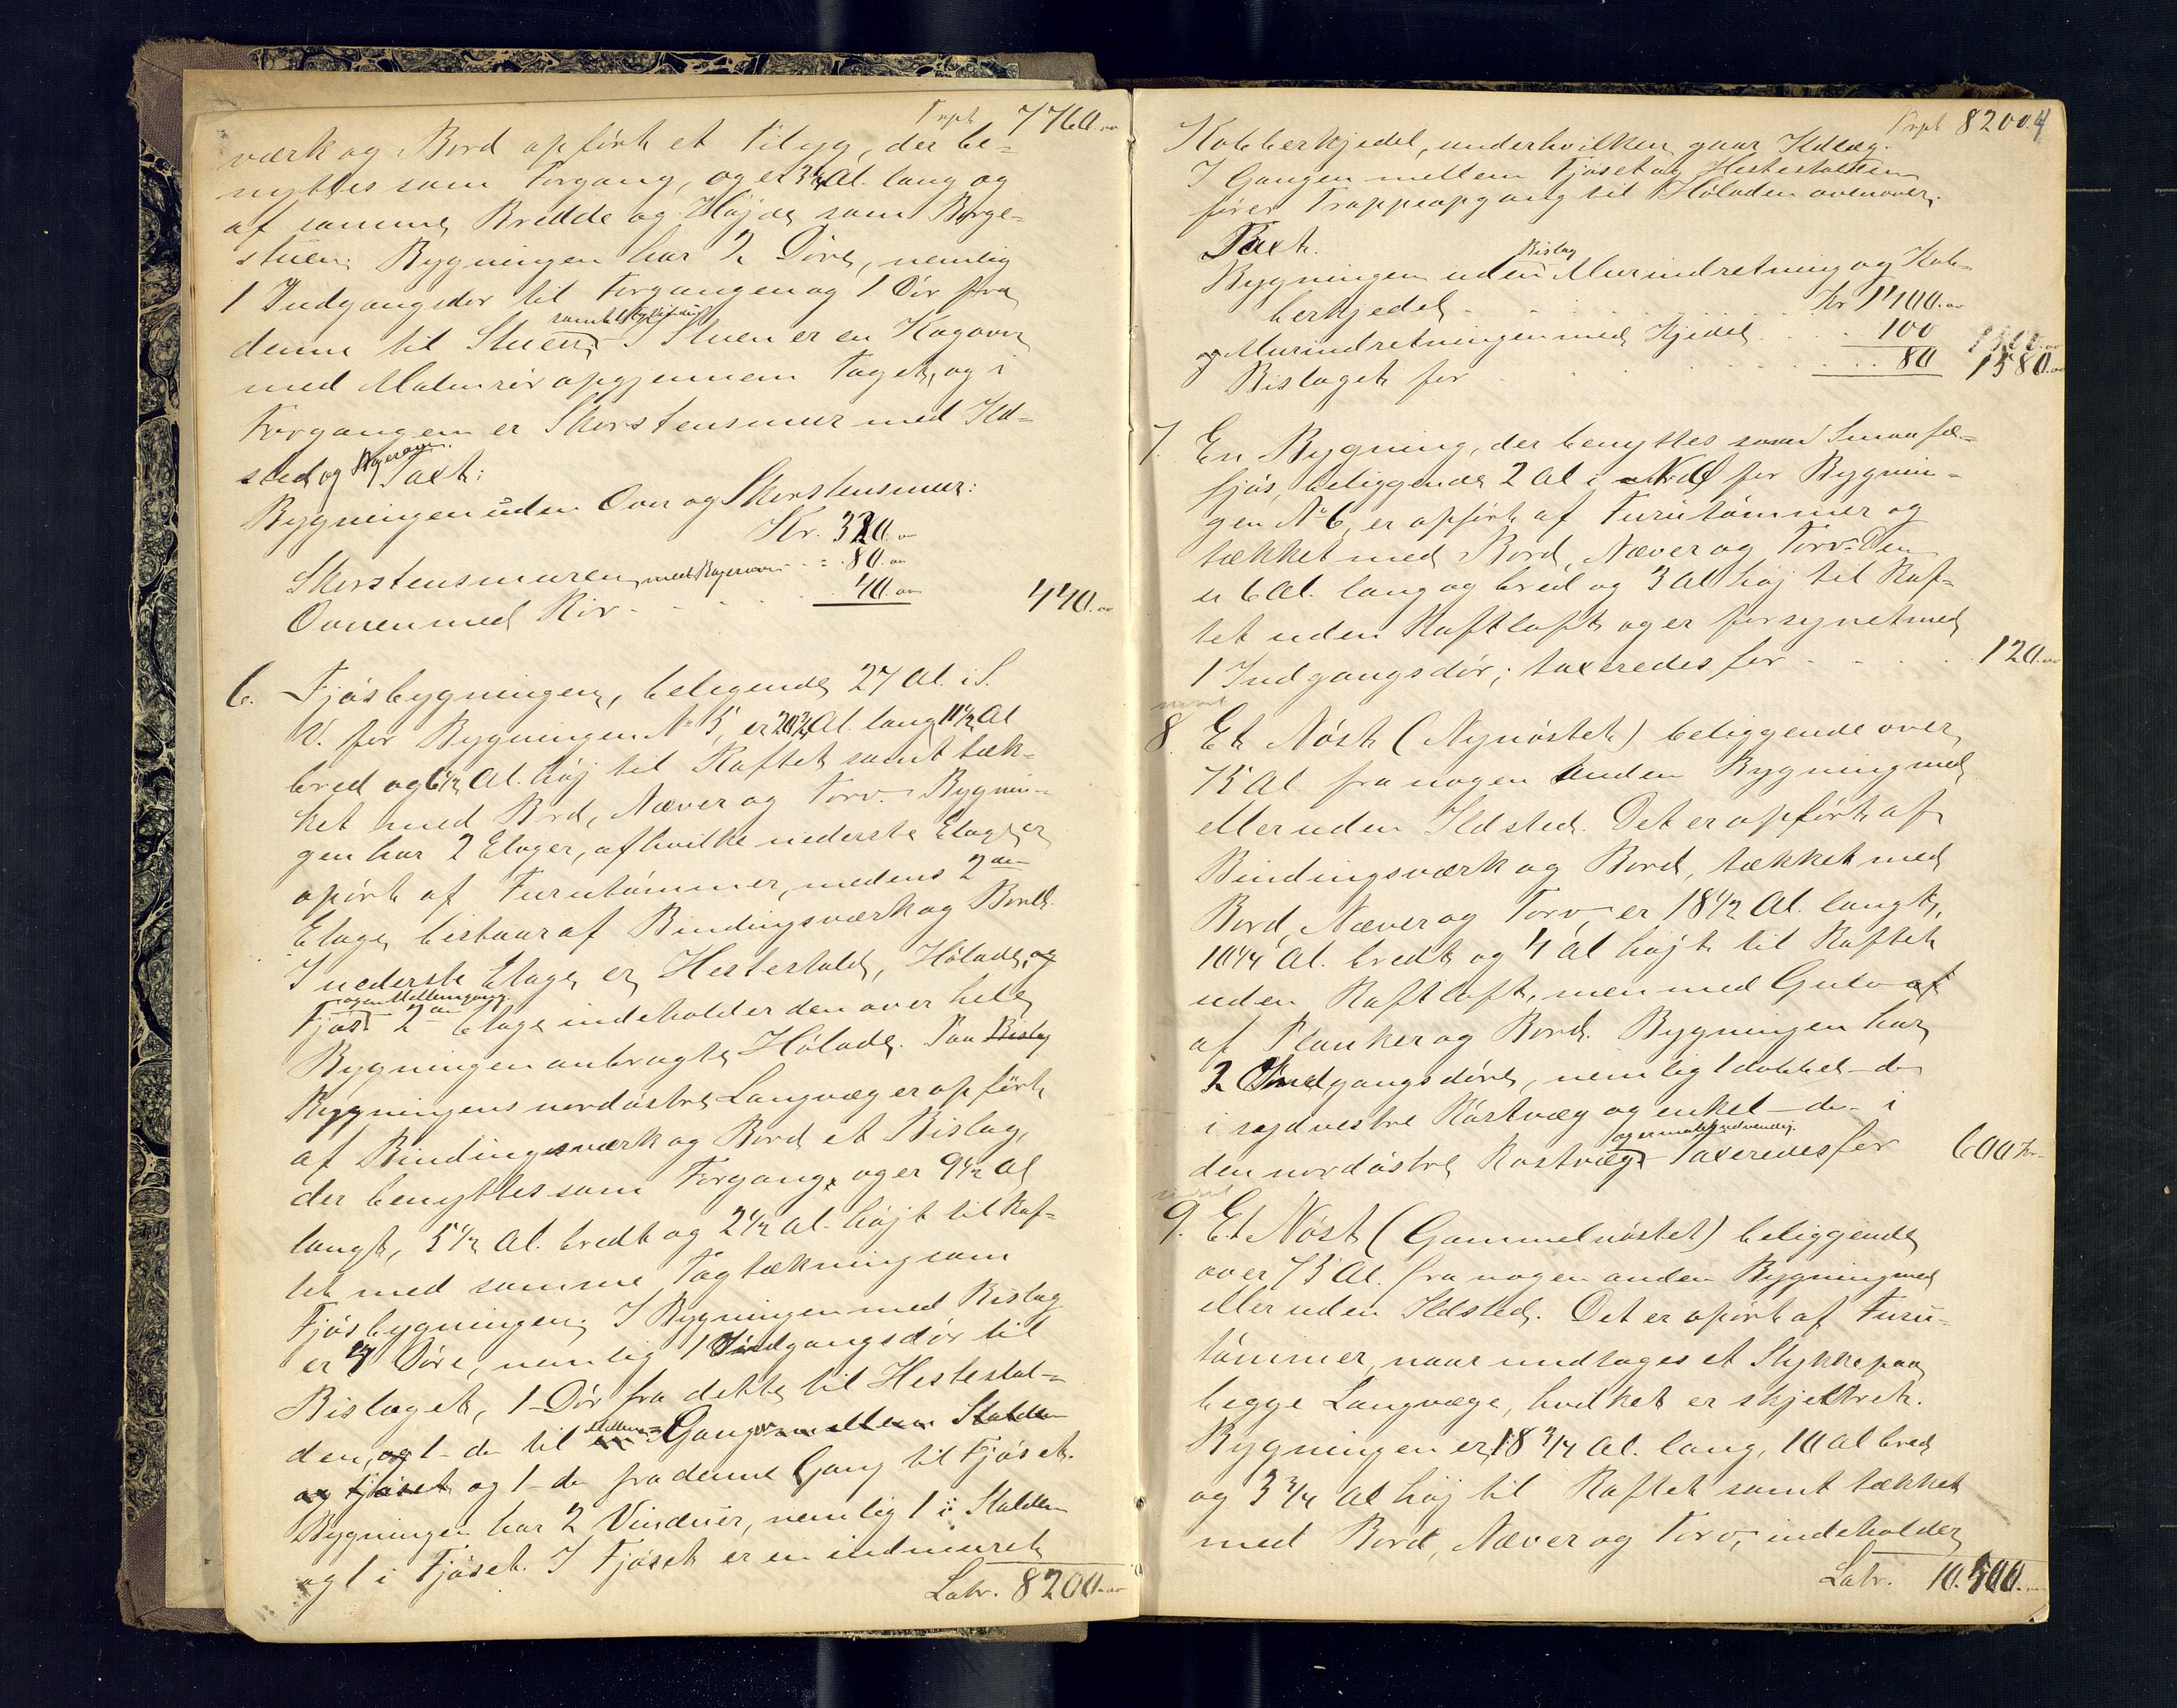 Trpt 7760.
værk og Bord opført et Tilyg, der be-
nyttes som Forgang, og er 3 3/4 Al. lang og
af samme Bredde og Højde som Borge-
stuen. Bygningen har 2 Døre, nemlig
1 Indgangsdør til Forgangen og 1 Dør fra
denne til Stuen samt I Stuen er en Kogovn
med Malmrør opgjennem Taget, og i
Forgangen er Skorstensmur med Ild-
sted og Bagerovn.
Taxt:
Bygningen uden Ovn og Skorstensmur:
Kr. 320.
Skorstensmuren med Bagerovn - - 80.
Ovnen med Rør - - - 40. 440.
6. Fjøsbygningen, beligende 27 Al. i S.
V. for Bygningen No 5, er 20 3/4 Al. lang 11 1/2 Al
bred og 6 1/2 Al. høj til Raftet samt tæk-
ket med Bord, Næver og Torv. Bygnin-
gen har 2 Etager, af hvilke nederste Etage er
opørt af Furutømmer, medens 2den
Etage bestaar af Bindingsværk og Bord.
I nederste Etage er Hestestald, Hølade, og
Fjøs. og en Mellemgang. 2den Etage indeholder den over hele
Bygningen anbragte Hølade. Paa Bislag
Bygningens nordøstre Langvæg er opført
af Bindingsværk og Bord et Bislag,
der benyttes som Forgang, og er 9 1/2 Al
langt, 5 1/2 Al. bredt og 2 1/2 Al. højt til Raf-
tet med samme Tagtækning som
Fjøsbygningen. I Bygningen med Bislag
er 4 Døre, nemlig 1 Indgangsdør til
Bislaget, 1 Dør fra dette til Hestestal-
den, og 1 - do til Mellem- Gang mellem Stalden
og Fjøset og 1 - do fra denne Gang til Fjøset.
Bygningen har 2 Vinduer, nemlig 1 i Stalden
og 1 i Fjøset. I Fjøset er en indmuret
Latr. 8200.
Trpt 8200. 4
Kobberkjedel, underhvilken gaar Ildlæg.
I Gangen mellem Fjøset og Hestestalden
fører Trappeopgang til Høladen ovenover.
Taxt.
Bygningen uden Bislag Murindretning og Kob-
berkjedel - - - Kr 1400.
og Murindretningen med Kjedel - - 100
Bislaget for - - - 80 1580.
7. En Bygning, der benyttes som Smaafæ-
fjøs, beliggende 2 Al i N.Ø for Bygnin-
gen No 6, er opført af Furutømmer og
tækket med Bord, Næver og Torv. Den
er 6 Al. lang og bred og 3 Al høj til Raf-
tet uden Raftloft og er forsynet med
1 Indgangsdør; taxeredes for - - - 120.
8. Et Nøst (Nynøstet) beliggende over
75 Al. fra nogen anden Bygning med
eller uden Ildsted. Det er opført af
Bindingsværk og Bord, tækket med
Bord, Næver og Torv, er 18 1/2 Al. langt,
10 1/4 Al. bredt og 4 Al højt til Raftet
uden Raftloft, men med Gulv af
af Planker og Bord. Bygningen har
2 Indgangsdøre, nemlig 1 dobbel - do
i sydvestre Røstvæg og enkel - do - i
den nordøstre Røstvæg og er malet udvendig. Taxeredes for 600 Kr.
9. Et Nøst (Gammelnøstet) beliggende
over 75 Al. fra nogen anden Bygning med
eller uden Ildsted. Det er opørt af Furu-
tømmer, naar undtages et Stykke paa
begge Langvæge, hvilket er skjeltret.
Bygningen er 18 3/4 Al. lang, 10 Al bred
og 3 3/4 Al høj til Raftet samt tækket
med Bord, Næver og Torv, indeholder
Latr. 10.500.